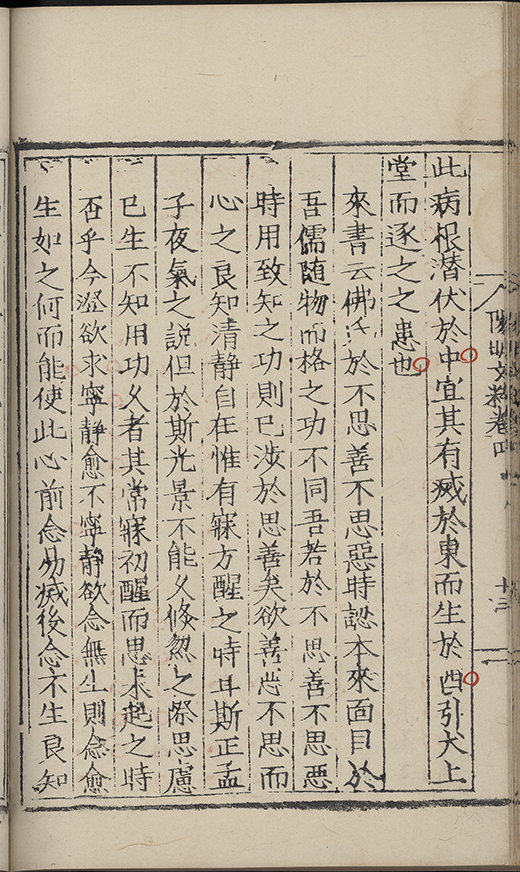 陽明文粹卷四 十三
此病根潜伏於中宜其有滅於東而生於西引犬上
堂而逐之之患也
來書云佛氏於不思善不思惡時認本來面目於
吾儒隨物而格之功不同吾若於不思善不思惡
時用致知之功則已涉於思善矣欲善惡不思而
心之良知清靜自在惟有寐方醒之時耳斯正孟
子夜氣之說但於斯光景不能久倏忽之際思慮
已生不知用功久者其常寐初醒而思未起之時
否乎今澄欲求寧靜愈不寧靜欲念無生則念愈
生如之何而能使此心前念易滅後念不生良知